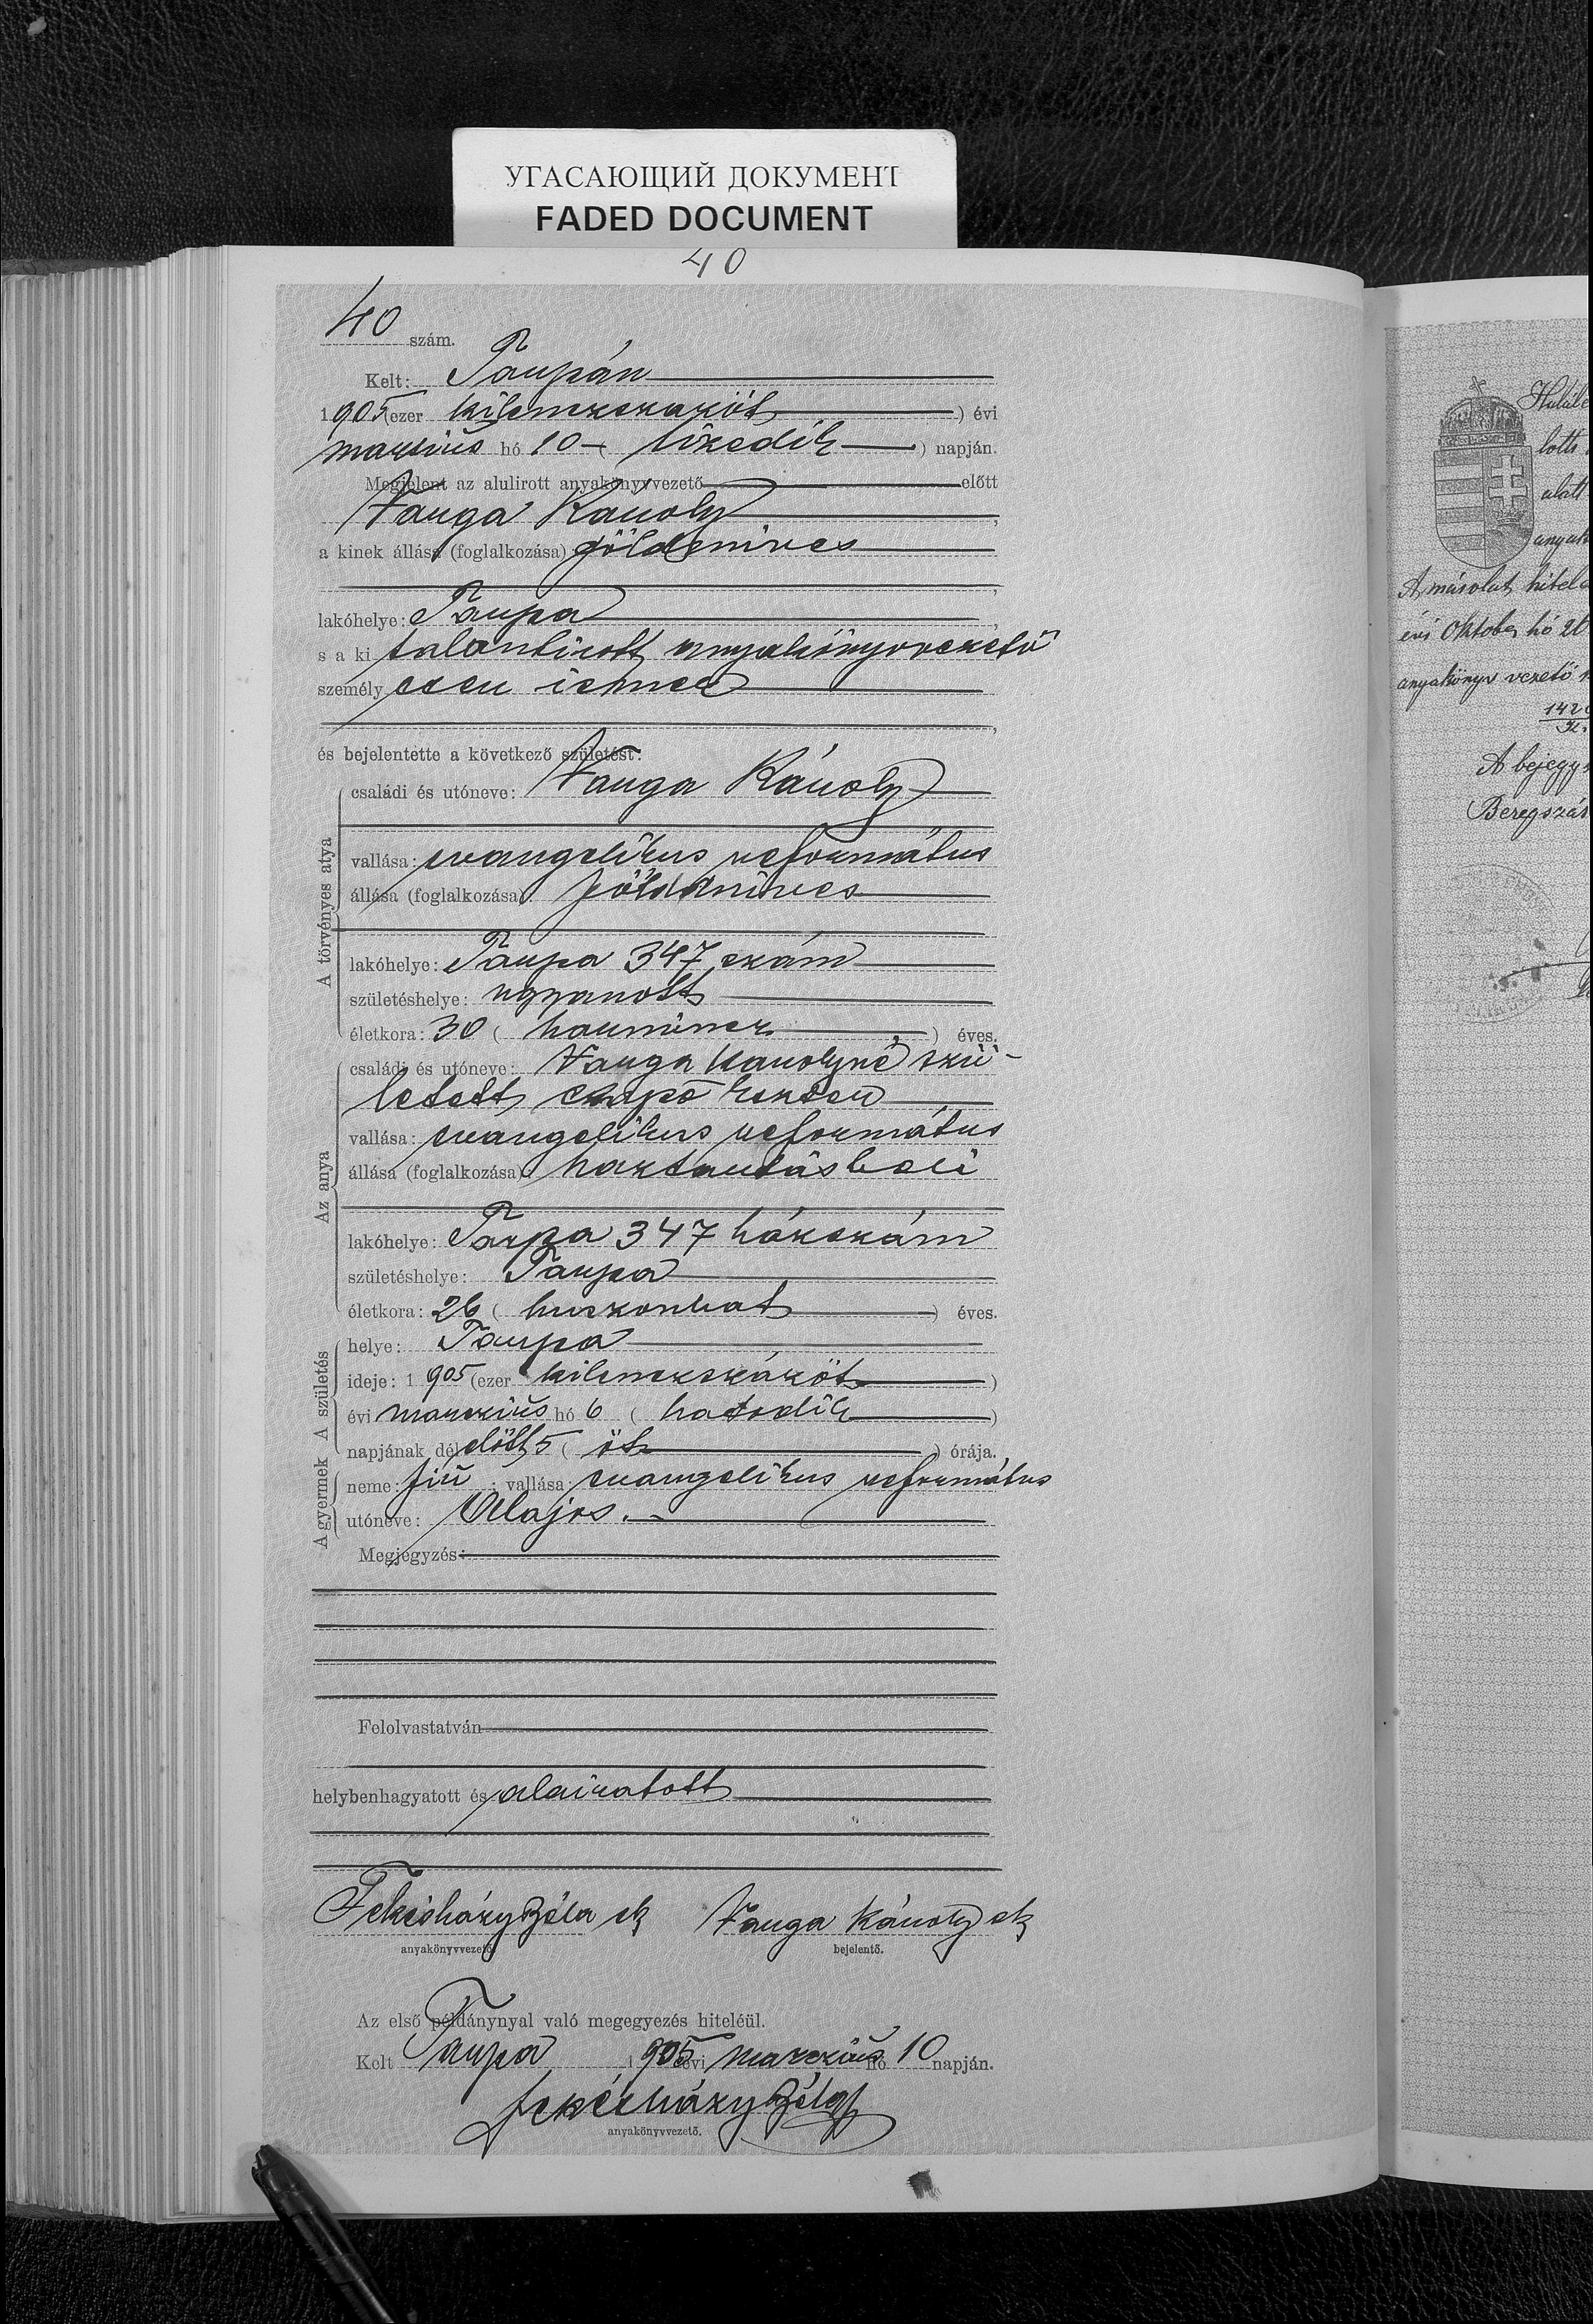 УГАСАЮЩИЙ ДОКУМЕНТ
FADED DOCUMENT
40
40 szám.
Kelt: Tarpán
1905 (ezer kilenczszázöt) évi
marczius hó 10 (tizedik) napján.
Megjelent az alulirott anyakönyvvezető előtt
Varga Károly,
a kinek állása (foglalkozása) földmives
lakóhelye: Tarpa,
s a ki alantirott anyakönyvvezető
személyesen ismer
és bejelentette a következő születést:
A törvényes atya
családi és utóneve: Varga Károly
vallása: evangelikus református
állása (foglalkozása): földmives
lakóhelye: Tarpa 347 szám
születéshelye: ugyanott
életkora: 30 (harmincz) éves.
Az anya
családi és utóneve: Varga Karolyné szü-
letett Eszter
vallása: evangelikus református
állása (foglalkozása): haztartásbeli
lakóhelye: Tarpa 347 házszám
születéshelye: Tarpa
életkora: 26 (huszonhat) éves.
A születés
helye: Tarpa
ideje: 1905 (ezer kilenczszázöt)
évi marczius hó 6 (hatodik)
napjának délelőtt 5 (öt) órája.
A gyermek
neme: fiú; vallása: evangelikus református
utóneve: Alajos.
Megjegyzés:
Felolvastatván
helybenhagyatott és alairatott
Fekésházy Béla sk Varga Károly sk
anyakönyvvezető. bejelentő.
Az első példánynyal való megegyezés hiteléül.
Kelt Tarpa 1905 évi marczius hó 10 napján.
Fekésházy Béla
anyakönyvvezető.
A másolat hitel
évi Oktober hó 20
anyakönyv vezető
A bejegy
Beregszás